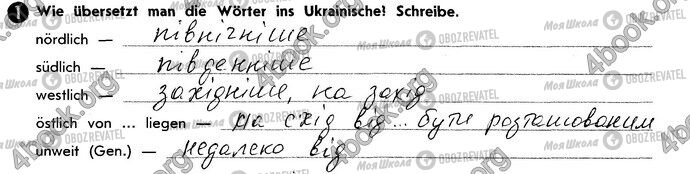 1 Wie übersetzt man die Wörter ins Ukrainische! Schreibe.
nördlich — північніше
südlich — південніше
westlich — західніше, на захід
östlich von ... liegen — на схід від... бути розташованим
unweit (Gen.) — недалеко від